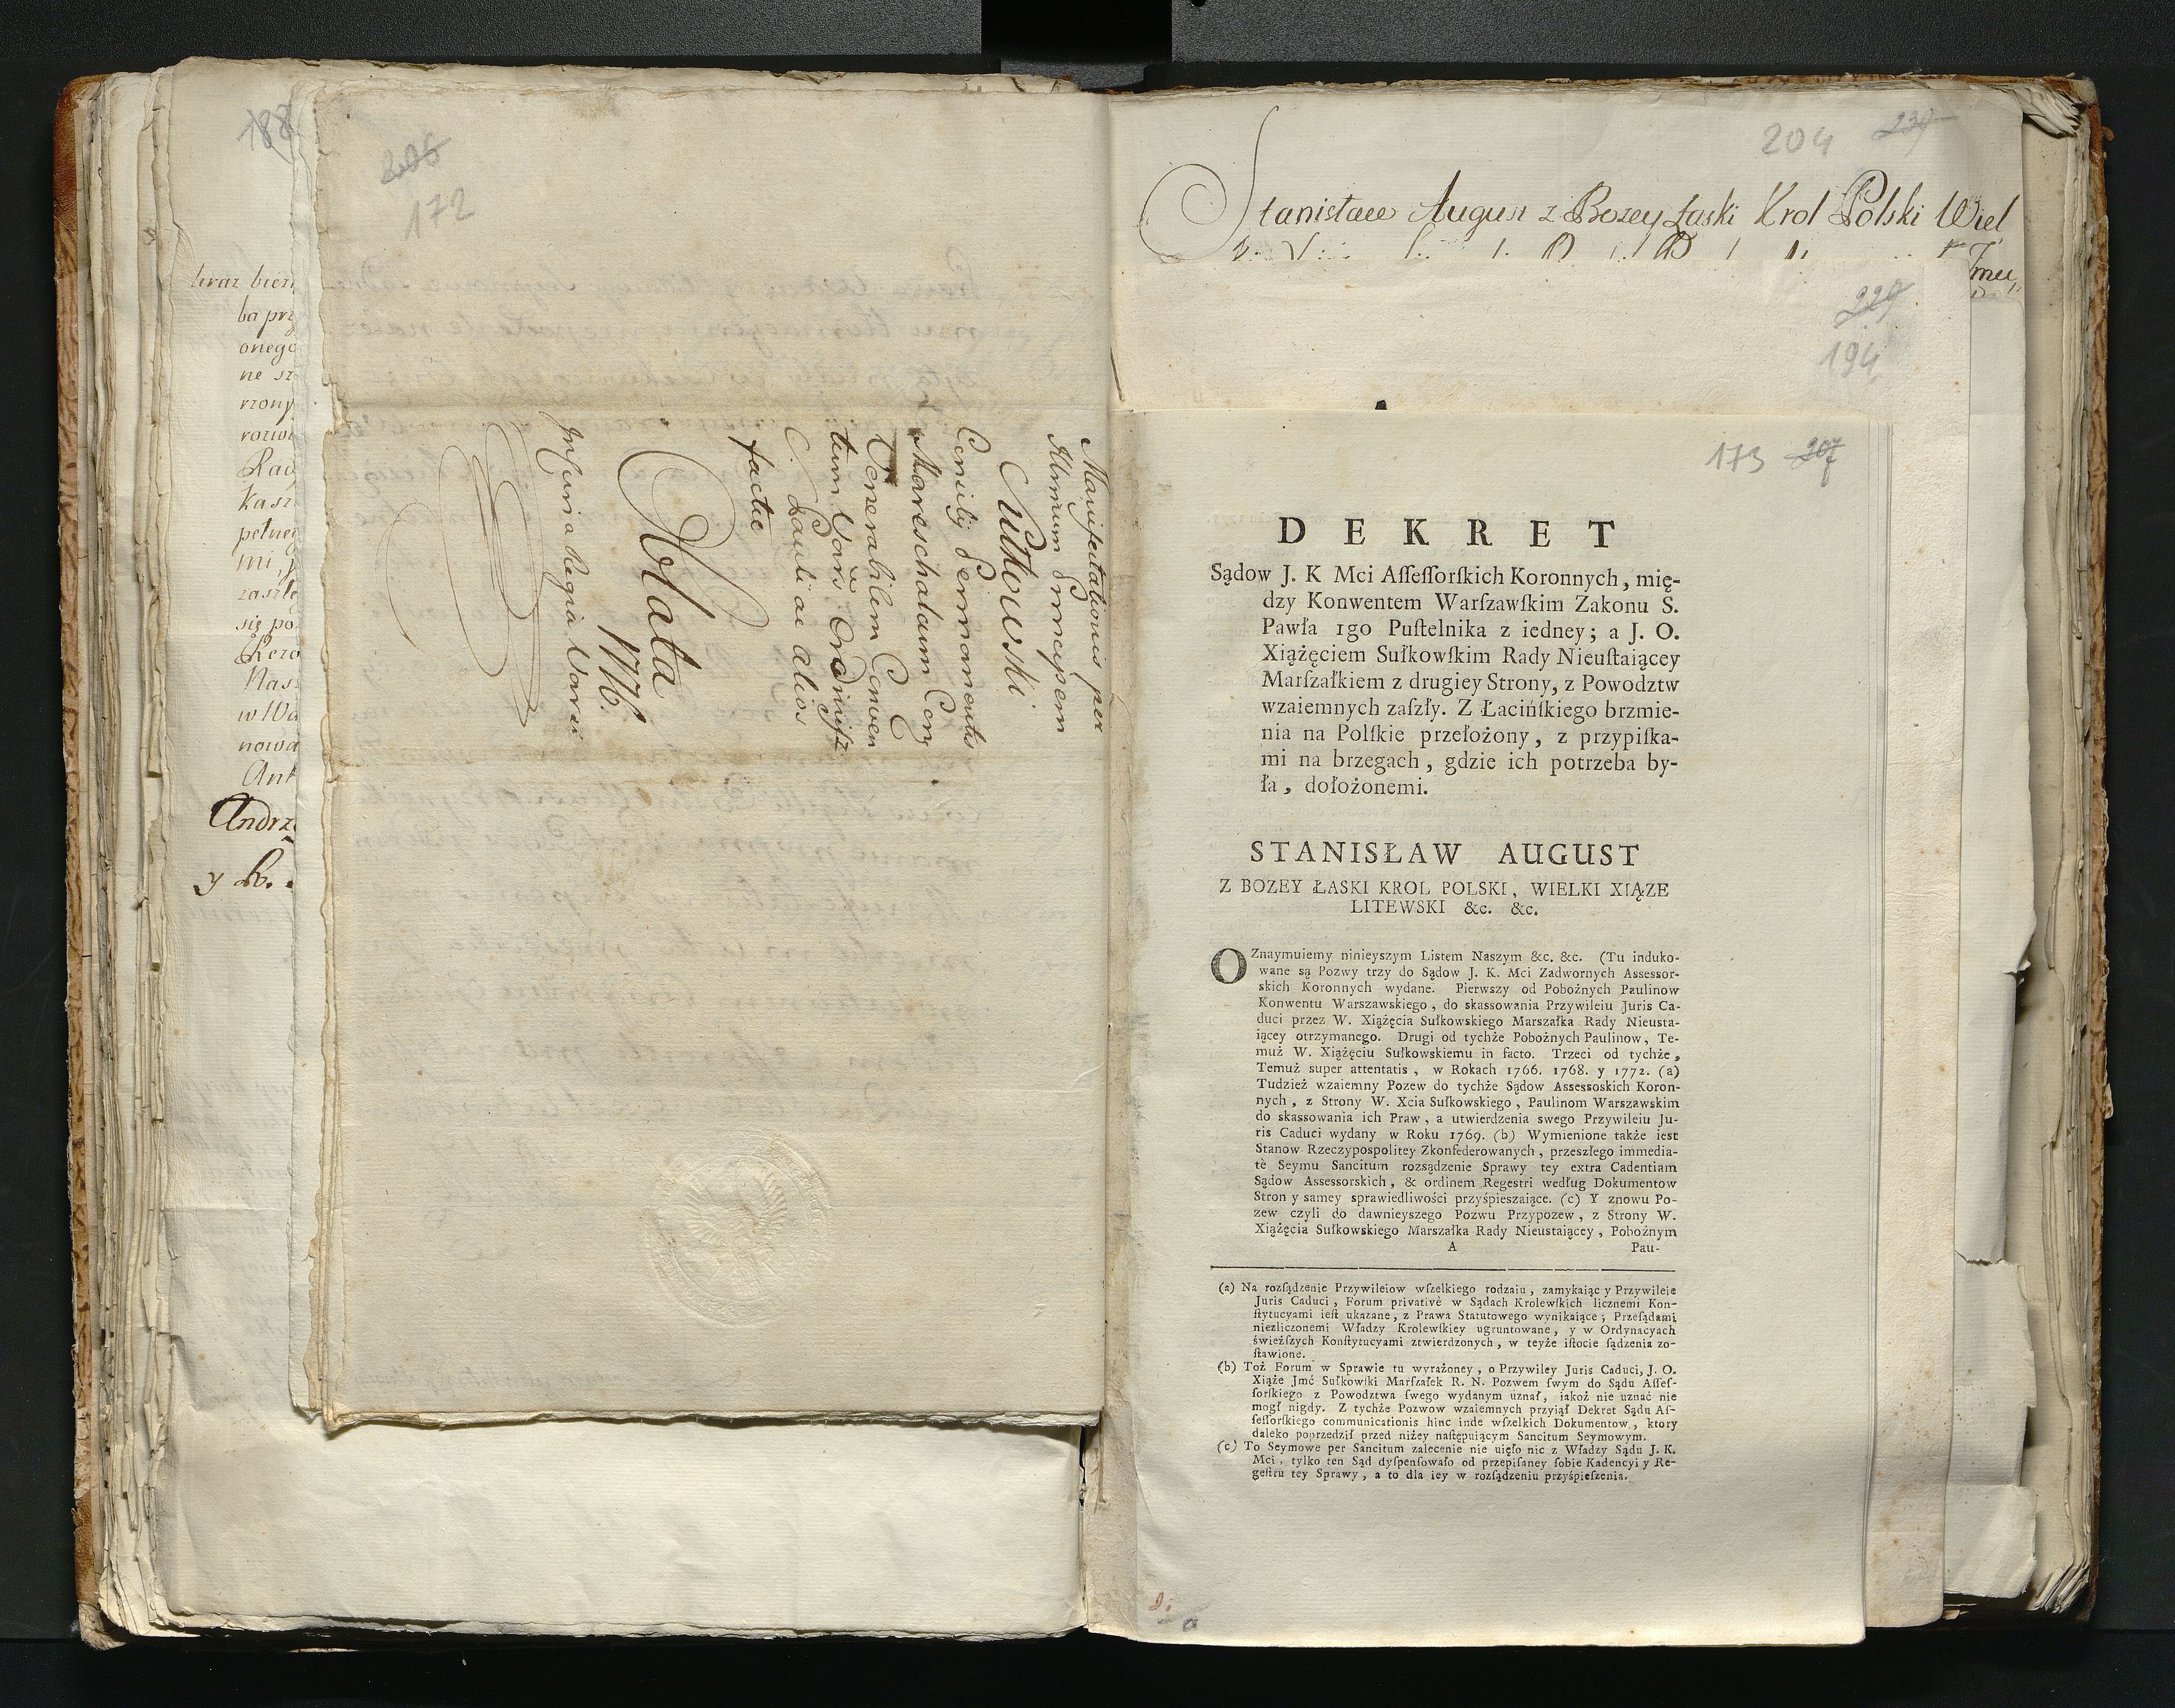 188
206
172
kraz bieżą
ba prz
onego
ne sz
rzony
pełneg
mi, 
się po
Nas
w Wa
nowa
Ant
Andrz
Manifestationis per
Illmum Principem
Sułkowski
Consilij Permanentis
Mareschalum Con
Venerabilem Conven
tum Varss Ord Minist
S. Pauli ac alios
factæ
Relata
1776.
204 239
Stanisław August z Bożey Łaski Krol Polski Wiel
229
194
173 207
DEKRET
Sądow J. K Mci Aſſeſſorſkich Koronnych, mię-
dzy Konwentem Warſzawſkim Zakonu S.
Pawła 1go Puſtelnika z iedney; a J. O.
Xiążęciem Sułkowſkim Rady Nieuſtaiącey
Marſzałkiem z drugiey Strony, z Powodztw
wzaiemnych zaſzły. Z Łacińſkiego brzmie-
nia na Polſkie przełożony, z przypiſka-
mi na brzegach, gdzie ich potrzeba by-
ła, dołożonemi.
STANISŁAW AUGUST
Z BOZEY ŁASKI KROL POLSKI, WIELKI XIĄZE
LITEWSKI &c. &c.
OZnaymuiemy ninieyszym Listem Naszym &c. &c. (Tu induko-
wane są Pozwy trzy do Sądow J. K. Mci Zadwornych Assessor-
skich Koronnych wydane. Pierwszy od Pobożnych Paulinow
Konwentu Warszawskiego, do skassowania Przywileiu Juris Ca-
duci przez W. Xiążęcia Sułkowskiego Marszałka Rady Nieusta-
iącey otrzymanego. Drugi od tychże Pobożnych Paulinow, Te-
muż W. Xiążęciu Sułkowskiemu in facto. Trzeci od tychże,
Temuż super attentatis, w Rokach 1766. 1768. y 1772. (a)
Tudzież wzaiemny Pozew do tychże Sądow Assessoskich Koron-
nych, z Strony W. Xcia Sułkowskiego, Paulinom Warszawskim
do skassowania ich Praw, a utwierdzenia swego Przywileiu Ju-
ris Caduci wydany w Roku 1769. (b) Wymienione także iest
Stanow Rzeczypospolitey Zkonfederowanych, przeszłego immedia-
tè Seymu Sancitum rozsądzenie Sprawy tey extra Cadentiam
Sądow Assessorskich, & ordinem Regestri według Dokumentow
Stron y samey sprawiedliwości przyśpieszaiące. (c) Y znowu Po-
zew czyli do dawnieyszego Pozwu Przypozew, z Strony W.
Xiążęcia Sułkowskiego Marszałka Rady Nieustaiącey, Pobożnym
A Pau-
(a) Na rozſądzenie Przywileiow wſzelkiego rodzaiu, zamykaiąc y Przywileie
Juris Caduci, Forum privativè w Sądach Krolewſkich licznemi Kon-
ſtytucyami ieſt ukazane, z Prawa Statutowego wynikaiące; Przeſądami
niezliczonemi Władzy Krolewſkiey ugruntowane, y w Ordynacyach
świeżſzych Konſtytucyami ztwierdzonych, w teyże iſtocie ſądzenia zo-
ſtawione.
(b) Toż Forum w Sprawie tu wyrażoney, o Przywiley Juris Caduci, J. O.
Xiąże Jmć Sułkowſki Marſzałek R. N. Pozwem ſwym do Sądu Aſſeſ-
ſorſkiego z Powodztwa ſwego wydanym uznał, iakoż nie uznać nie
mogł nigdy. Z tychże Pozwow wzaiemnych przyiął Dekret Sądu Aſ-
ſeſſorſkiego communicationis hinc inde wſzelkich Dokumentow, ktory
daleko poprzedził przed niżey naſtępuiącym Sancitum Seymowym.
(c) To Seymowe per Sancitum zalecenie nie uięło nic z Władzy Sądu J. K.
Mci, tylko ten Sąd dyſpenſowało od przepiſaney ſobie Kadencyi y Re-
geſtru tey Sprawy, a to dla iey w rozſądzeniu przyśpieſzenia.